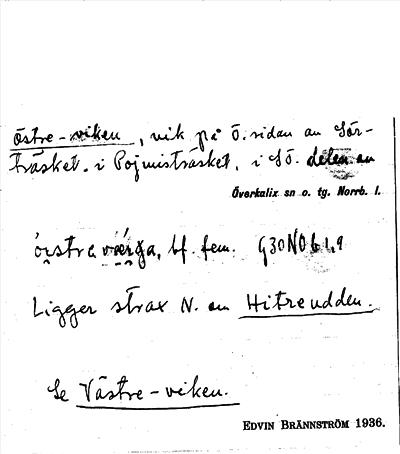 Östre-viken, vik på Ö. sidan av Sör-
träsket. i Pojmisträsket, i SÖ. delen av
Överkalix sn o. tg. Norrb. l.
bf. fem. G30N0b1,9
Ligger strax N. om Hitreudden.
Se Västre-viken.
EDVIN BRÄNNSTRÖM 1936.